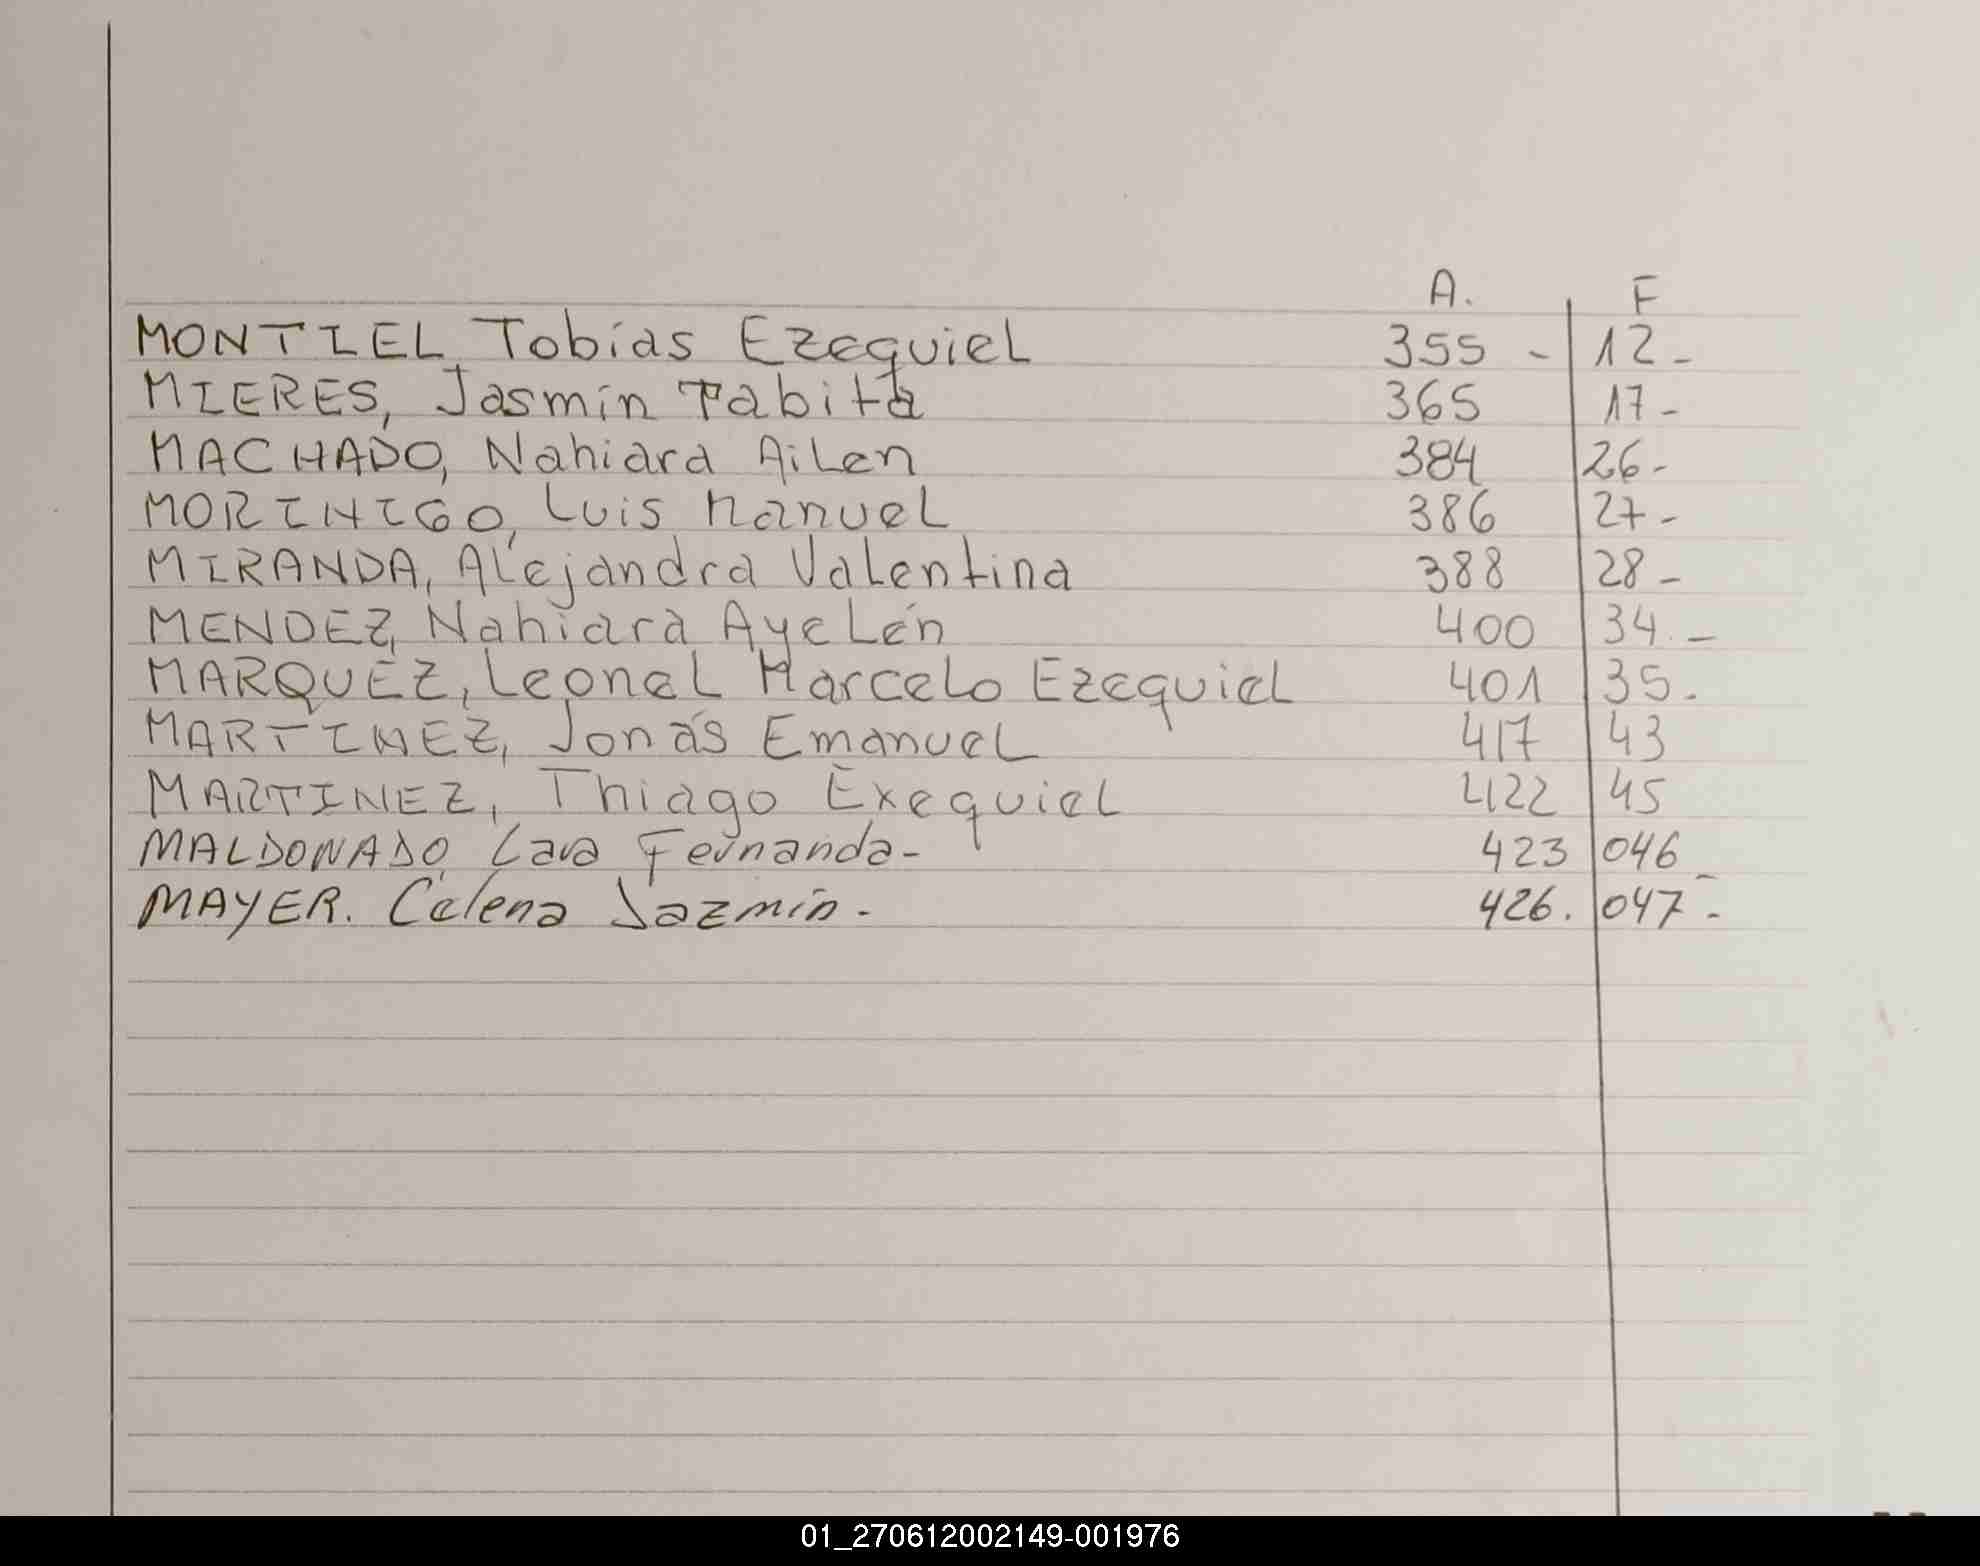 A. F
MONTIEL, Tobías Ezequiel 355 - 12 -
MIERES, Jasmín Tabita 365 17 -
MACHADO, Nahiara Ailen 384 26 -
MORINIGO, Luis Manuel 386 27 -
MIRANDA, Alejandra Valentina 388 28 -
MENDEZ, Nahiara Ayelén 400 34. -
MARQUEZ, Leonel Marcelo Ezequiel 401 35.
MARTINEZ, Jonás Emanuel 417 43
MARTINEZ, Thiago Exequiel 422 45
MALDONADO, Lara Fernanda - 423 046 -
MAYER. Celena Jazmín - 426. 047 -
01_270612002149-001976